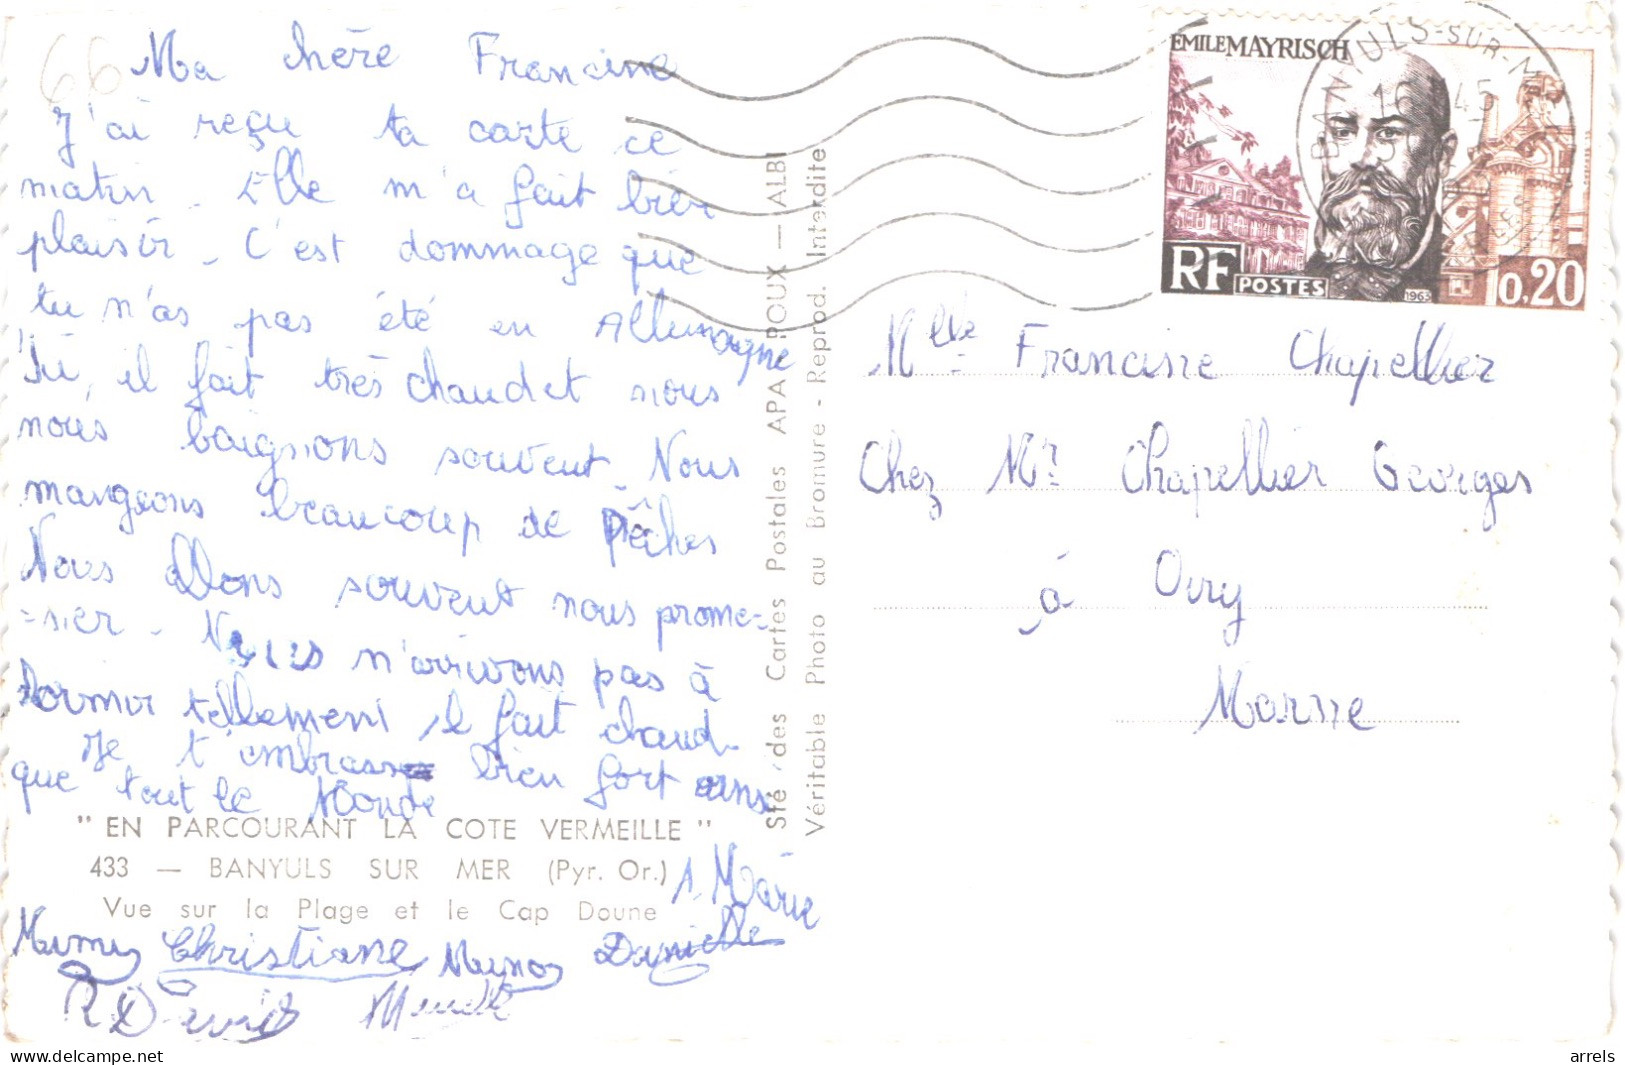 66
Ma chère Francine
J'ai reçu ta carte ce
matin. Elle m'a fait bien
plaisir. C'est dommage que
tu n'as pas été en Allemagne
Ici, il fait très chaud et nous
nous baignons souvent. Nous
mangeons beaucoup de pêches
Nous allons souvent nous prome-
-ner. Nous n'arrivons pas à
dormir tellement il fait chaud.
Je t'embrasse bien fort ains
que tout le Monde
" EN PARCOURANT LA COTE VERMEILLE "
433 — BANYULS SUR MER (Pyr. Or.)
Vue sur la Plage et le Cap Doune
A. Marie
Christiane
Danielle
Sté des Cartes Postales APA POUX — ALBI
Véritable Photo au Bromure - Reprod. Interdite
EMILE MAYRISCH
BANYULS-SUR-M
16 45
RF POSTES 1963 0,20
Mlle Francine Chapellier
Chez Mr Chapellier Georges
à Oiry
Marne
www.delcampe.net
arrels